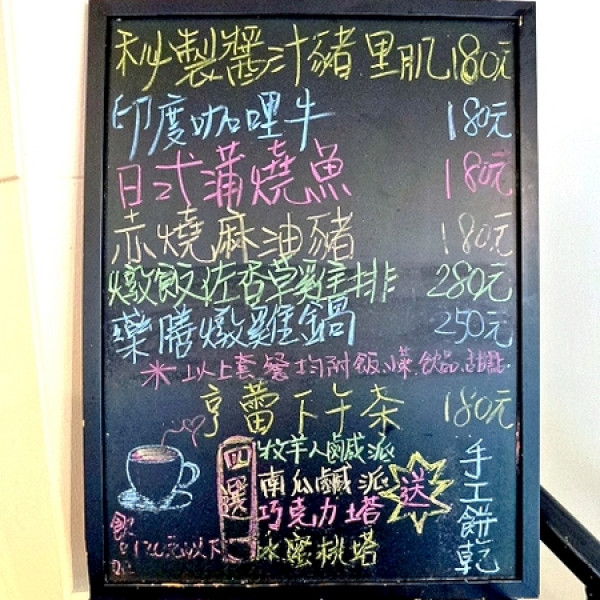 秘製醬汁豬里肌180元
印度咖哩牛 180元
日式蒲燒魚 180元
赤燒麻油豬 180元
燉飯佐香草雞排 280元
藥膳燉雞鍋 250元
*以上套餐均附飯.湯.飲品.甜點
亨蕾下午茶 180元
四選一
牧羊人鹹派
南瓜鹹派
巧克力塔
水蜜桃塔
送
手工餅乾
飲
120元以下